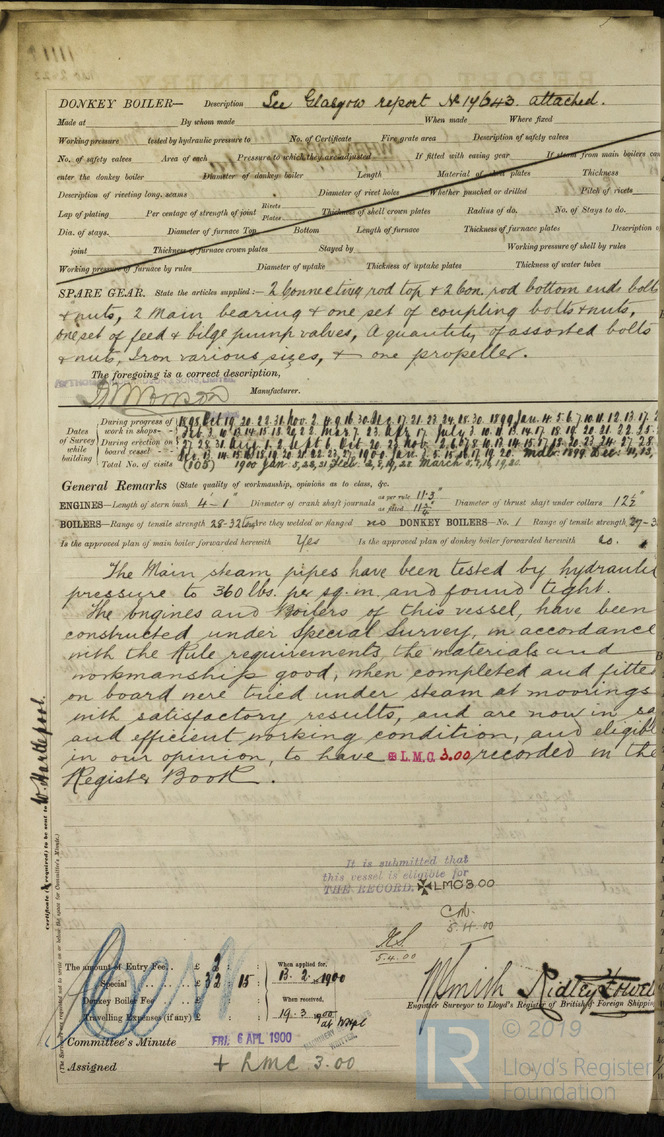 DONKEY BOILER— Description See Glasgow report No 14643 attached.
Made at By whom made When made Where fixed
Working pressure tested by hydraulic pressure to No. of Certificate Fire grate area Description of safety valves
No. of safety valves Area of each Pressure to which they are adjusted If fitted with easing gear If steam from main boilers can
enter the donkey boiler Diameter of donkey boiler Length Material of shell plates Thickness
Description of riveting long. seams Diameter of rivet holes Whether punched or drilled Pitch of rivets
Lap of plating Per centage of strength of joint Rivets Plates Thickness of shell crown plates Radius of do. No. of Stays to do.
Dia. of stays. Diameter of furnace Top Bottom Length of furnace Thickness of furnace plates Description of
joint Thickness of furnace crown plates Stayed by Working pressure of shell by rules
Working pressure of furnace by rules Diameter of uptake Thickness of uptake plates Thickness of water tubes
SPARE GEAR. State the articles supplied:— 2 Connecting rod top & 2 Con. rod bottom ends bolts
& nuts, 2 Main bearing & one set of coupling bolts & nuts,
one set of feed & bilge pump valves, A quantity of assorted bolts
& nuts, Iron various sizes, & one propeller.
The foregoing is a correct description,
Manufacturer.
Dates of Survey while building
During progress of work in shops--
During erection on board vessel---
Total No. of visits (103) 1900 Jan.
General Remarks (State quality of workmanship, opinions as to class, &c.
ENGINES—Length of stern bush 4'-1" Diameter of crank shaft journals as per rule 11.3" as fitted 11 3/4" Diameter of thrust shaft under collars 12 1/2"
BOILERS—Range of tensile strength 28-32 tons Are they welded or flanged no DONKEY BOILERS—No. 1 Range of tensile strength 27-3
Is the approved plan of main boiler forwarded herewith Yes Is the approved plan of donkey boiler forwarded herewith no.
The Main steam pipes have been tested by hydraulic
pressure to 360 lbs. per sq. in. and found tight.
The Engines and Boilers of this vessel, have been
constructed under Special Survey, in accordance
with the Rule requirements, the materials and
workmanship good, when completed and fitted
on board were tried under steam at moorings
with satisfactory results, and are now in sa
and efficient working condition, and eligible
in our opinion, to have L.M.C. 3.00 recorded in the
Register Book.
Certificate (if required) to be sent to W. Hartlepool.
(The Surveyors are requested not to write on or below the space for Committee's Minute.)
It is submitted that
this vessel is eligible for
THE RECORD. ✠LMC 3.00
5.4.00
5.4.00
The amount of Entry Fee.. £ 3 : : When applied for,
Special £ 32 : 15 : 13.2.1900
Donkey Boiler Fee £ : : When received,
Travelling Expenses (if any) £ : : 19.3.1900
W Smith Ridley Howel
Engineer Surveyor to Lloyd's Register of British & Foreign Shipping
Committee's Minute FRI. 6 APL 1900
MACHINERY CERTIFICATE WRITTEN
Assigned + LMC 3.00
LR © 2019
Lloyd's Register
Foundation